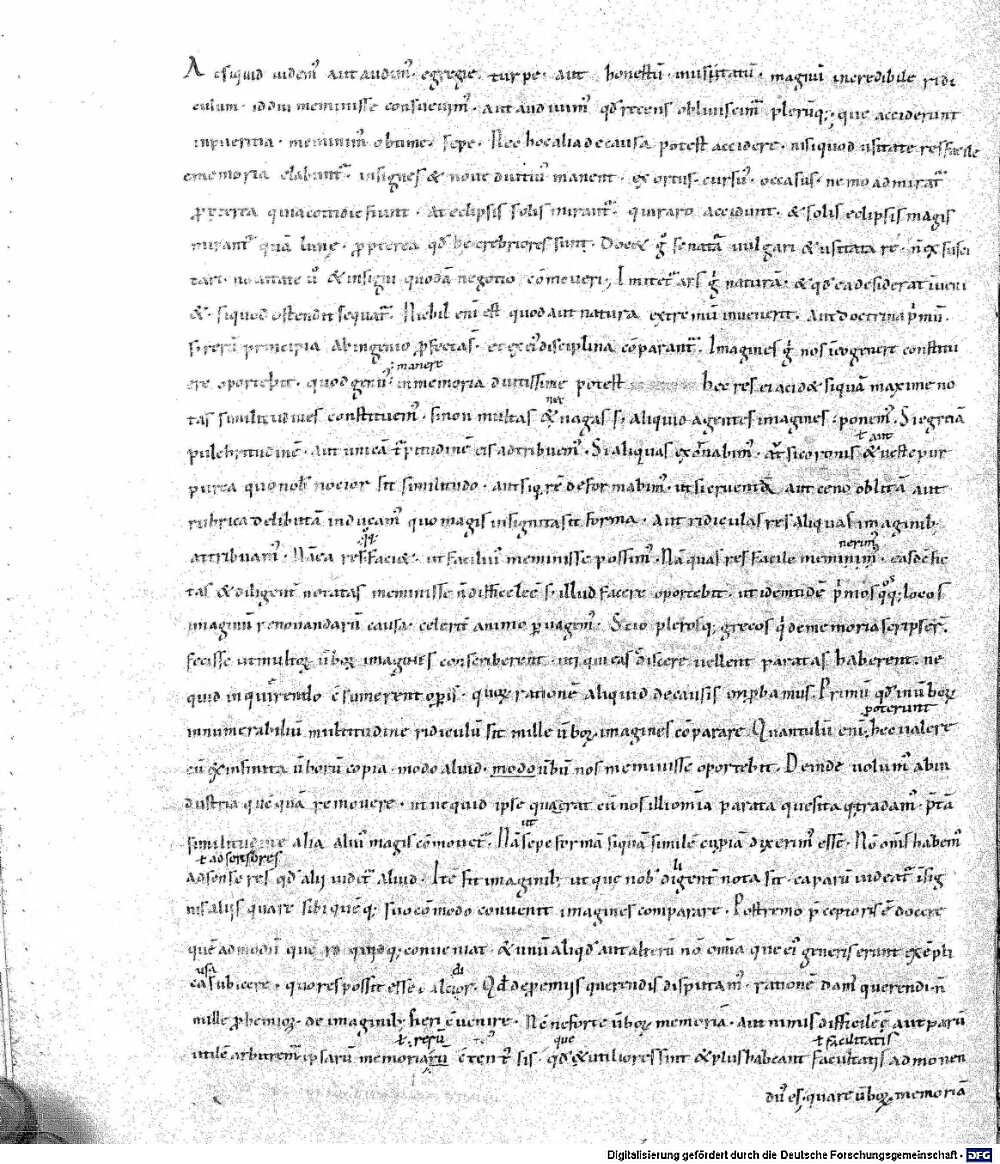 At siquid videmˀ aut audimˀ· egregie turpe· aut honestū· inusitatū· magnū incredibile ridi
culum· id diu meminisse consuevimˀ· aut audivimˀ qđ recens obliviscimˀ plerūq; que acciderunt
in pueritia· meminimˀ obtime· sepe· Nec hoc alia de causa potest accidere· nisi quod usitate res facile
ememoria elabantˀ· insignes & nove diutiuˀ manent· exortus· cursuˀ· occasus· nemo admiratˀ
ꝓpterea quia cottidie fiunt· At eclipsis solis mirantˀ· qui raro accidunt· & solis eclipsis magis
mirantˀ quā lune· ꝓpterea qđ he crebriores sunt· Docet gͦ se natura vulgari & usitata re· n̄ exsusci
tari· novitate ūͦ & insigni quodā negotio cōmoveri· Imitetˀ ars gͦ naturā· & qđ ea desiderat īveni
&· siquod ostendit sequatˀ· Nichil enī est quod aut natura extremū invenerit· aut doctrina pͥmū·
s; rerū principia ab ingenio ꝓfecta s̄· et exitˀ disciplina cōparantˀ· Imagines gͦ nos ī eo genere constitu
ere oportebit· quod genuˀ in memoria diutissime manere potest hec res ei acid& siquā maxime no
tas similitudines constituemˀ· si non multas nec vagas s; aliquid agentes imagines ponemˀ· Si egregiā
pulchritudinē· aut unicā t̄pitudinē eis adtribuemˀ· Si aliquas exornabimˀ· at si coronis & aut veste pur
purea quo nobˀ nocior sit similitudo· aut siq̨ re deformabimˀ· ut si cruentā aut ceno oblitā aut
rubrica delibutā inducamˀ quo magis insignita sit forma· Aut ridiculas res aliquas imaginib;
attribuamˀ· Nā ea res faci&· ut faciliuˀ meminisse possimˀ· Nā quas res facile meminimˀ nerimˀ· easdē fic
tas & diligent̄ notatas meminisse n̄ difficile ē s; illud facere oportebit· ut identidē pͥmos q̊q; locos
imaginū renovandarū causa· celerit̄ animo ꝑvagemˀ· Scio plerosq; grecos q̇ de memoria scripser̄·
fecisse ut multoꝝ ūboꝝ imagines conscriberent· uti qui eas discere vellent paratas haberent· ne
quid in quirendo cōsumerent opˀis· quoꝝ rationē aliquid de causis inꝓbamus· Primū qđ in ūboꝝ
innumerabiliū multitudine ridiculū sit mille ūboꝝ imagines cōparare· Quantulū enī hec valere poterunt
cū ex infinita ūborū copia· modo aliud· modo ūbū nos meminisse oportebit· Deinde volumˀ ab in
dustria quēquā removere· ut nequid ipse querat cū nos illi omīa parata quesita q; tradamˀ· pͣtā
similitudine alia aliuˀ magis cōmovetˀ· Nā ut sepe formā siquā similē cuipiā dixerimˀ esse· Nō om̄s habemˀ
ł adsensores
adsensores qđ alii videtˀ aliud· Ite fit imaginib; ut que nobˀ diligent̄ nota sit· ea parū videatˀ īsig
nis aliis quare sibi quēq; suo cōmodo convenit imagines comparare· Postremo pͣceptoris ē docere
quē admodū que rͥ quidq; conveniat· & unū aliqđ aut alterū nō om̄ia que eiˀ generis erunt exēpli
causa subicere· quo res possit esse dilucidior· Qđ de premiis querendis disputamˀ· rationē damˀ querendi n̄
mille ꝓhemioꝝ· de imaginib; fieri cōvenire· Nē ne forte ūboꝝ memoriā· aut nimis difficilē aut parū
utilē arbitremˀ ipsarū memoriarū ł rerū cōtentˀ sis· qđ & utiliores sint & plus habeant facultatis ł facilitatis ad monen
duˀ es· quare ūboꝝ memoriā
Digitalisierung gefördert durch die Deutsche Forschungsgemeinschaft · DFG